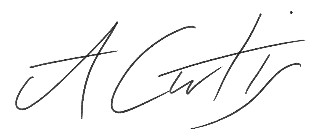 A Curtis